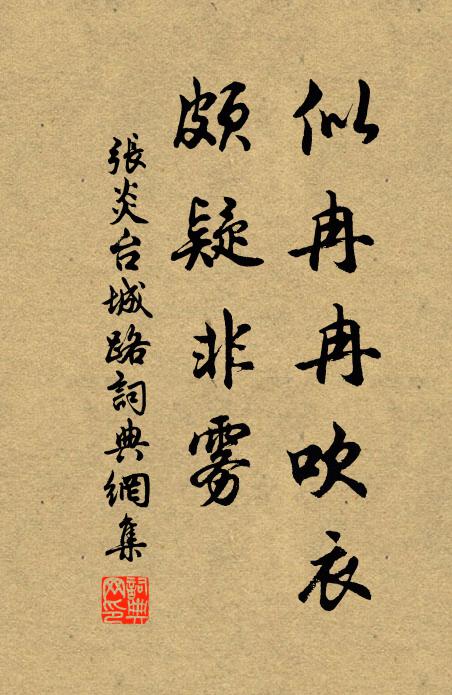 似冉冉吹衣
頗疑非雾
張炎台城路詞典網集
詞典
网印